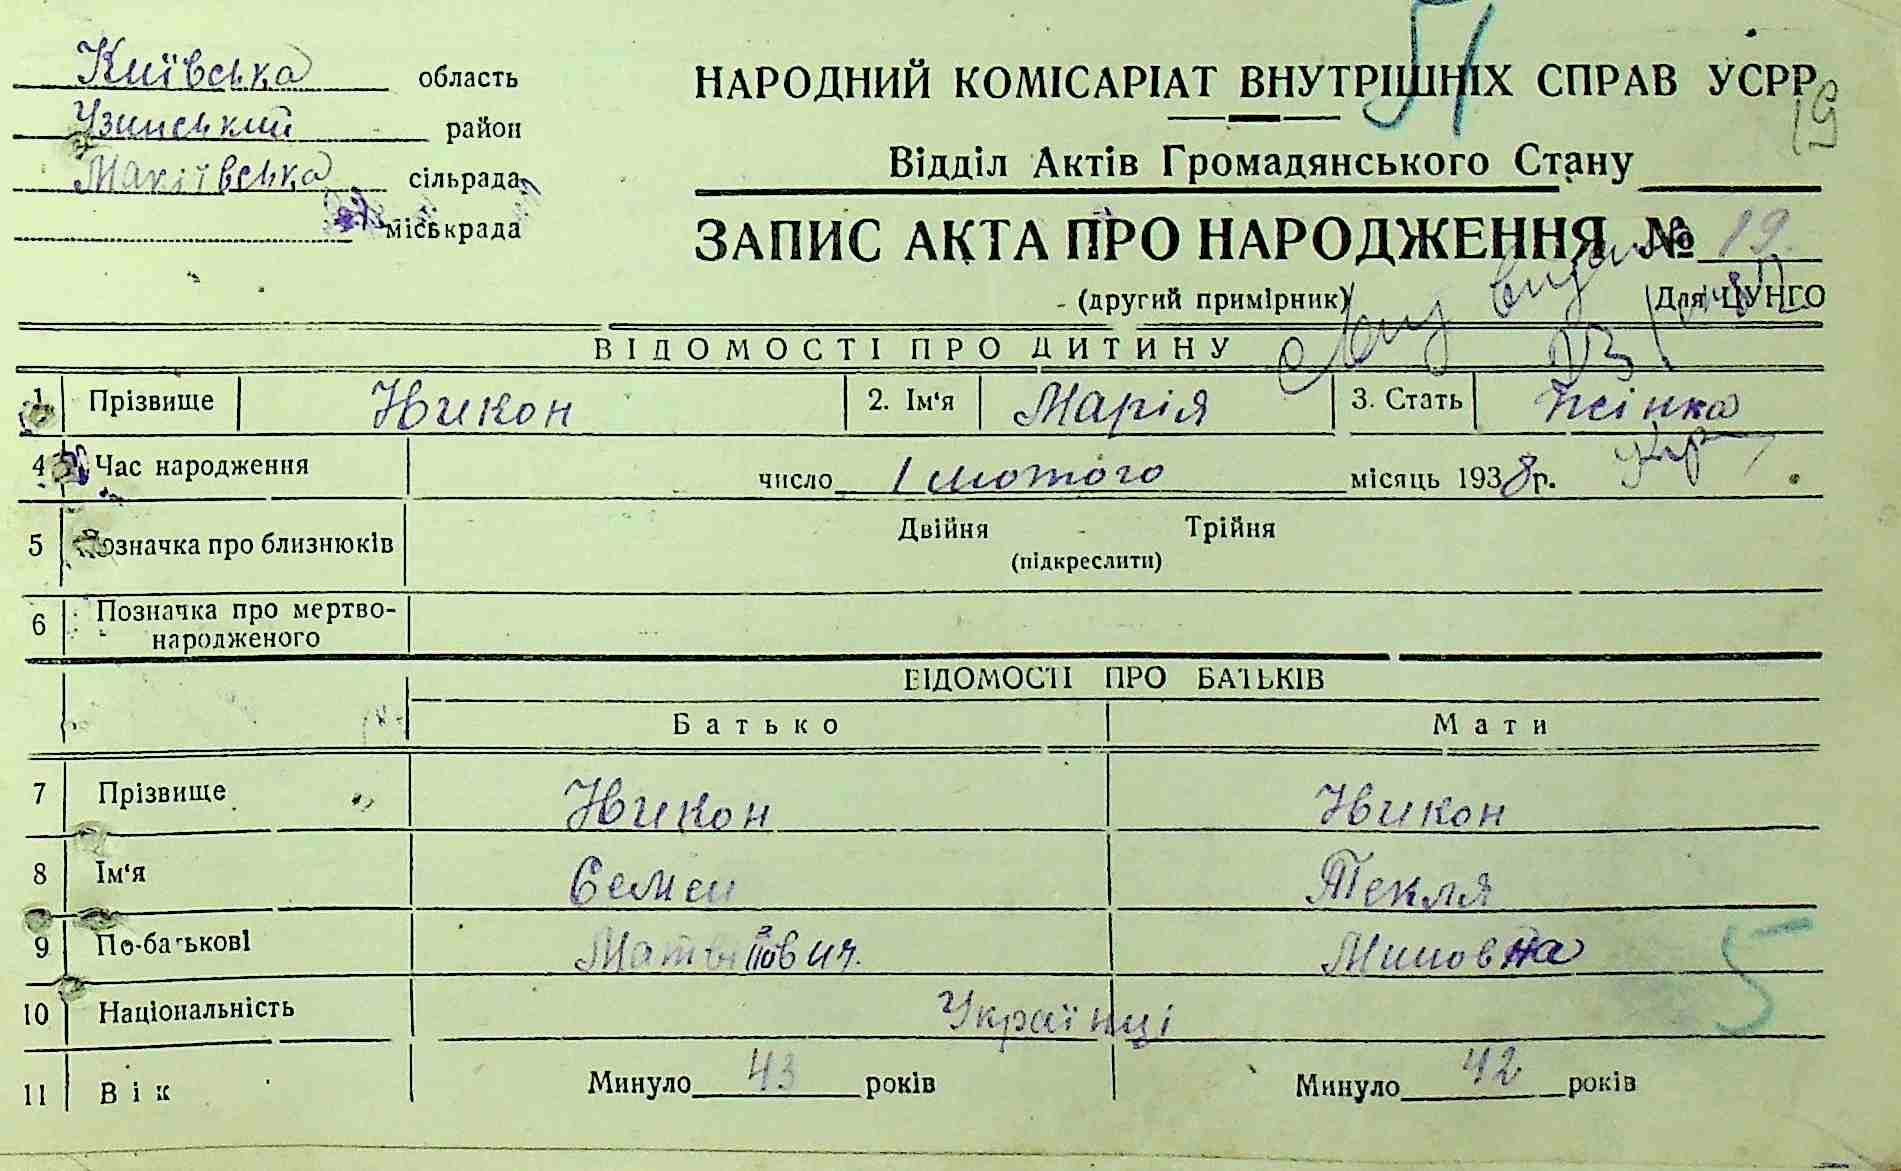 Київська область
Узинський район
Макіївська сільрада
міськрада
51
НАРОДНИЙ КОМІСАРІАТ ВНУТРІШНІХ СПРАВ УСРР
19
Відділ Актів Громадянського Стану
ЗАПИС АКТА ПРО НАРОДЖЕННЯ № 19.
(другий примірник)
Для ЦУНГО
ВІДОМОСТІ ПРО ДИТИНУ
1 Прізвище Никон 2. Ім'я Марія 3. Стать Жінка
укр
4 Час народження число 1 лютого місяць 1938 р.
5 Позначка про близнюків Двійня - Трійня
(підкреслити)
6 Позначка про мертво-
народженого
ВІДОМОСТІ ПРО БАТЬКІВ
Батько Мати
7 Прізвище Никон Никон
8 Ім'я Семен Текля
9 По-батькові Матвійович. Миновна
5
10 Національність Українці
11 Вік Минуло 43 років Минуло 42 років